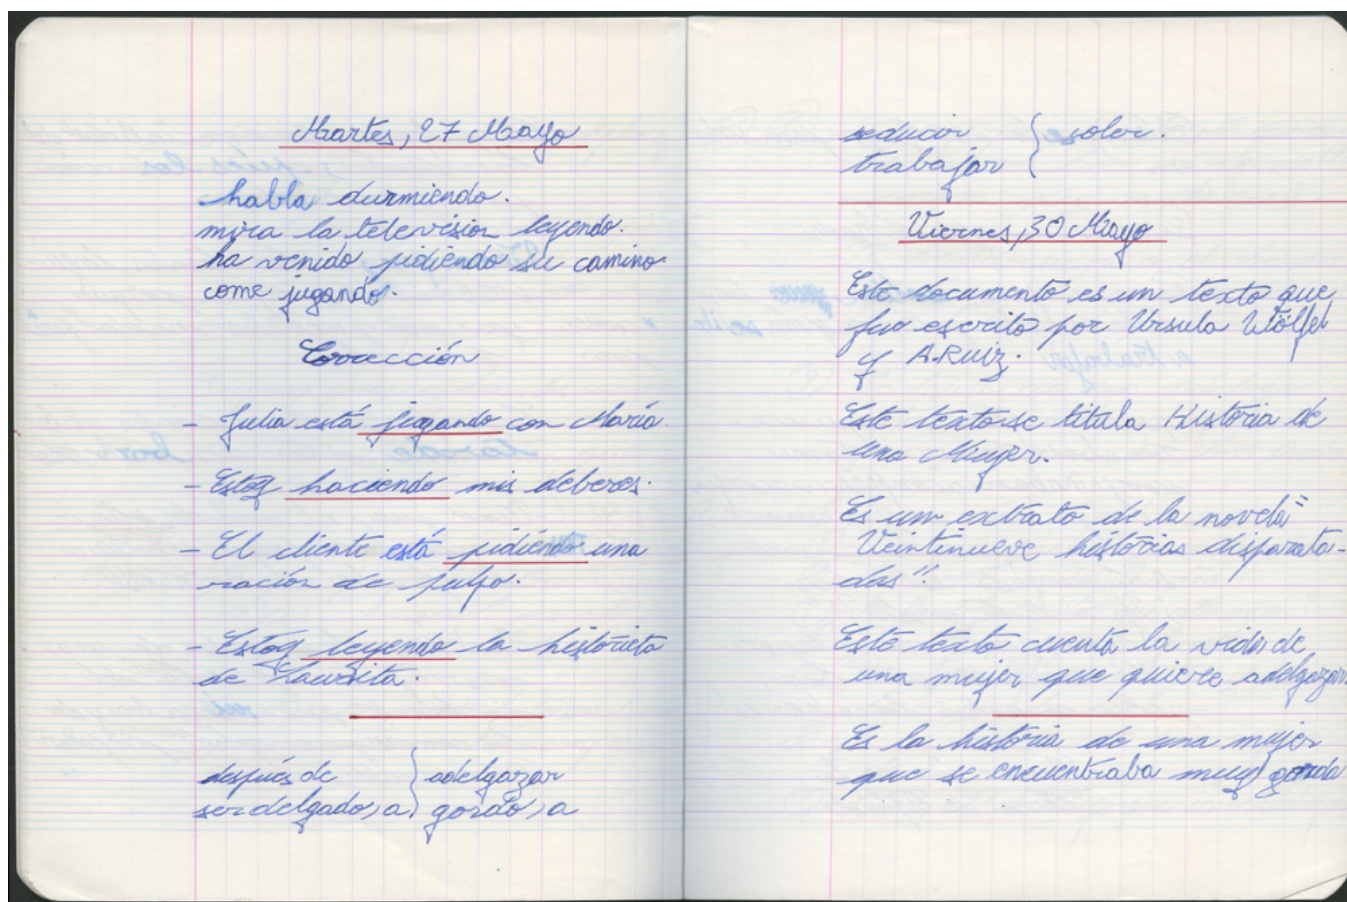 Martes, 27 Mayo
habla durmiendo.
mira la televisión leyendo.
ha venido pidiendo su camino.
come jugando.
Corrección
- Julia está jugando con María.
- Estoy haciendo mis deberes.
- El cliente está pidiendo una
ración de pulpo.
- Estoy leyendo la historieta
de Laurita.
después de } adelgazar
ser delgado, a } gordo, a
seducir { soler.
trabajar {
Viernes, 30 Mayo
Este documento es un texto que
fue escrito por Ursula Wölfel
y A. Ruiz.
Este texto se titula Historia de
una Mujer.
Es un extrato de la novela "
Veintinueve historias disparata-
das".
Este texto cuenta la vida de
una mujer que quiere adelgazar.
Es la historia de una mujer
que se encuentraba muy gorda